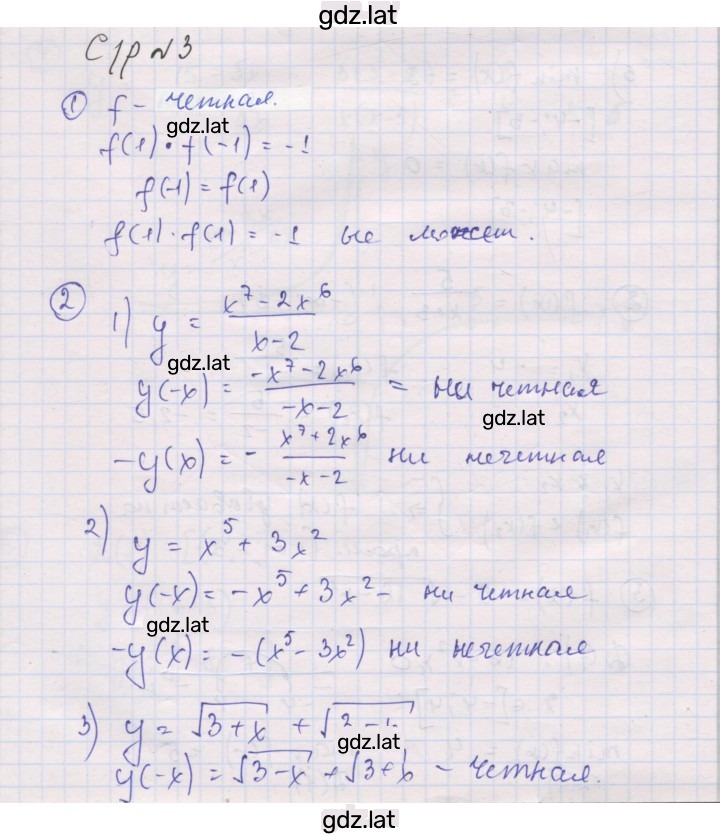 gdz.lat
С/р №3
① f – четная.
gdz.lat
f(1) • f(-1) = -1
f(-1) = f(1)
f(1) · f(1) = -1 не может.
② 1) y = (x⁷ - 2x⁶)/(x - 2)
gdz.lat
y(-x) = (-x⁷ - 2x⁶)/(-x - 2) = ни четная
gdz.lat
-y(x) = - (x⁷ + 2x⁶)/(-x - 2) ни нечетная
2) y = x⁵ + 3x²
y(-x) = -x⁵ + 3x² - ни четная
gdz.lat
-y(x) = -(x⁵ - 3x²) ни нечетная
3) y = √(3 + x) + √
gdz.lat
y(-x) = √(3 - x) + √ - четная.
gdz.lat